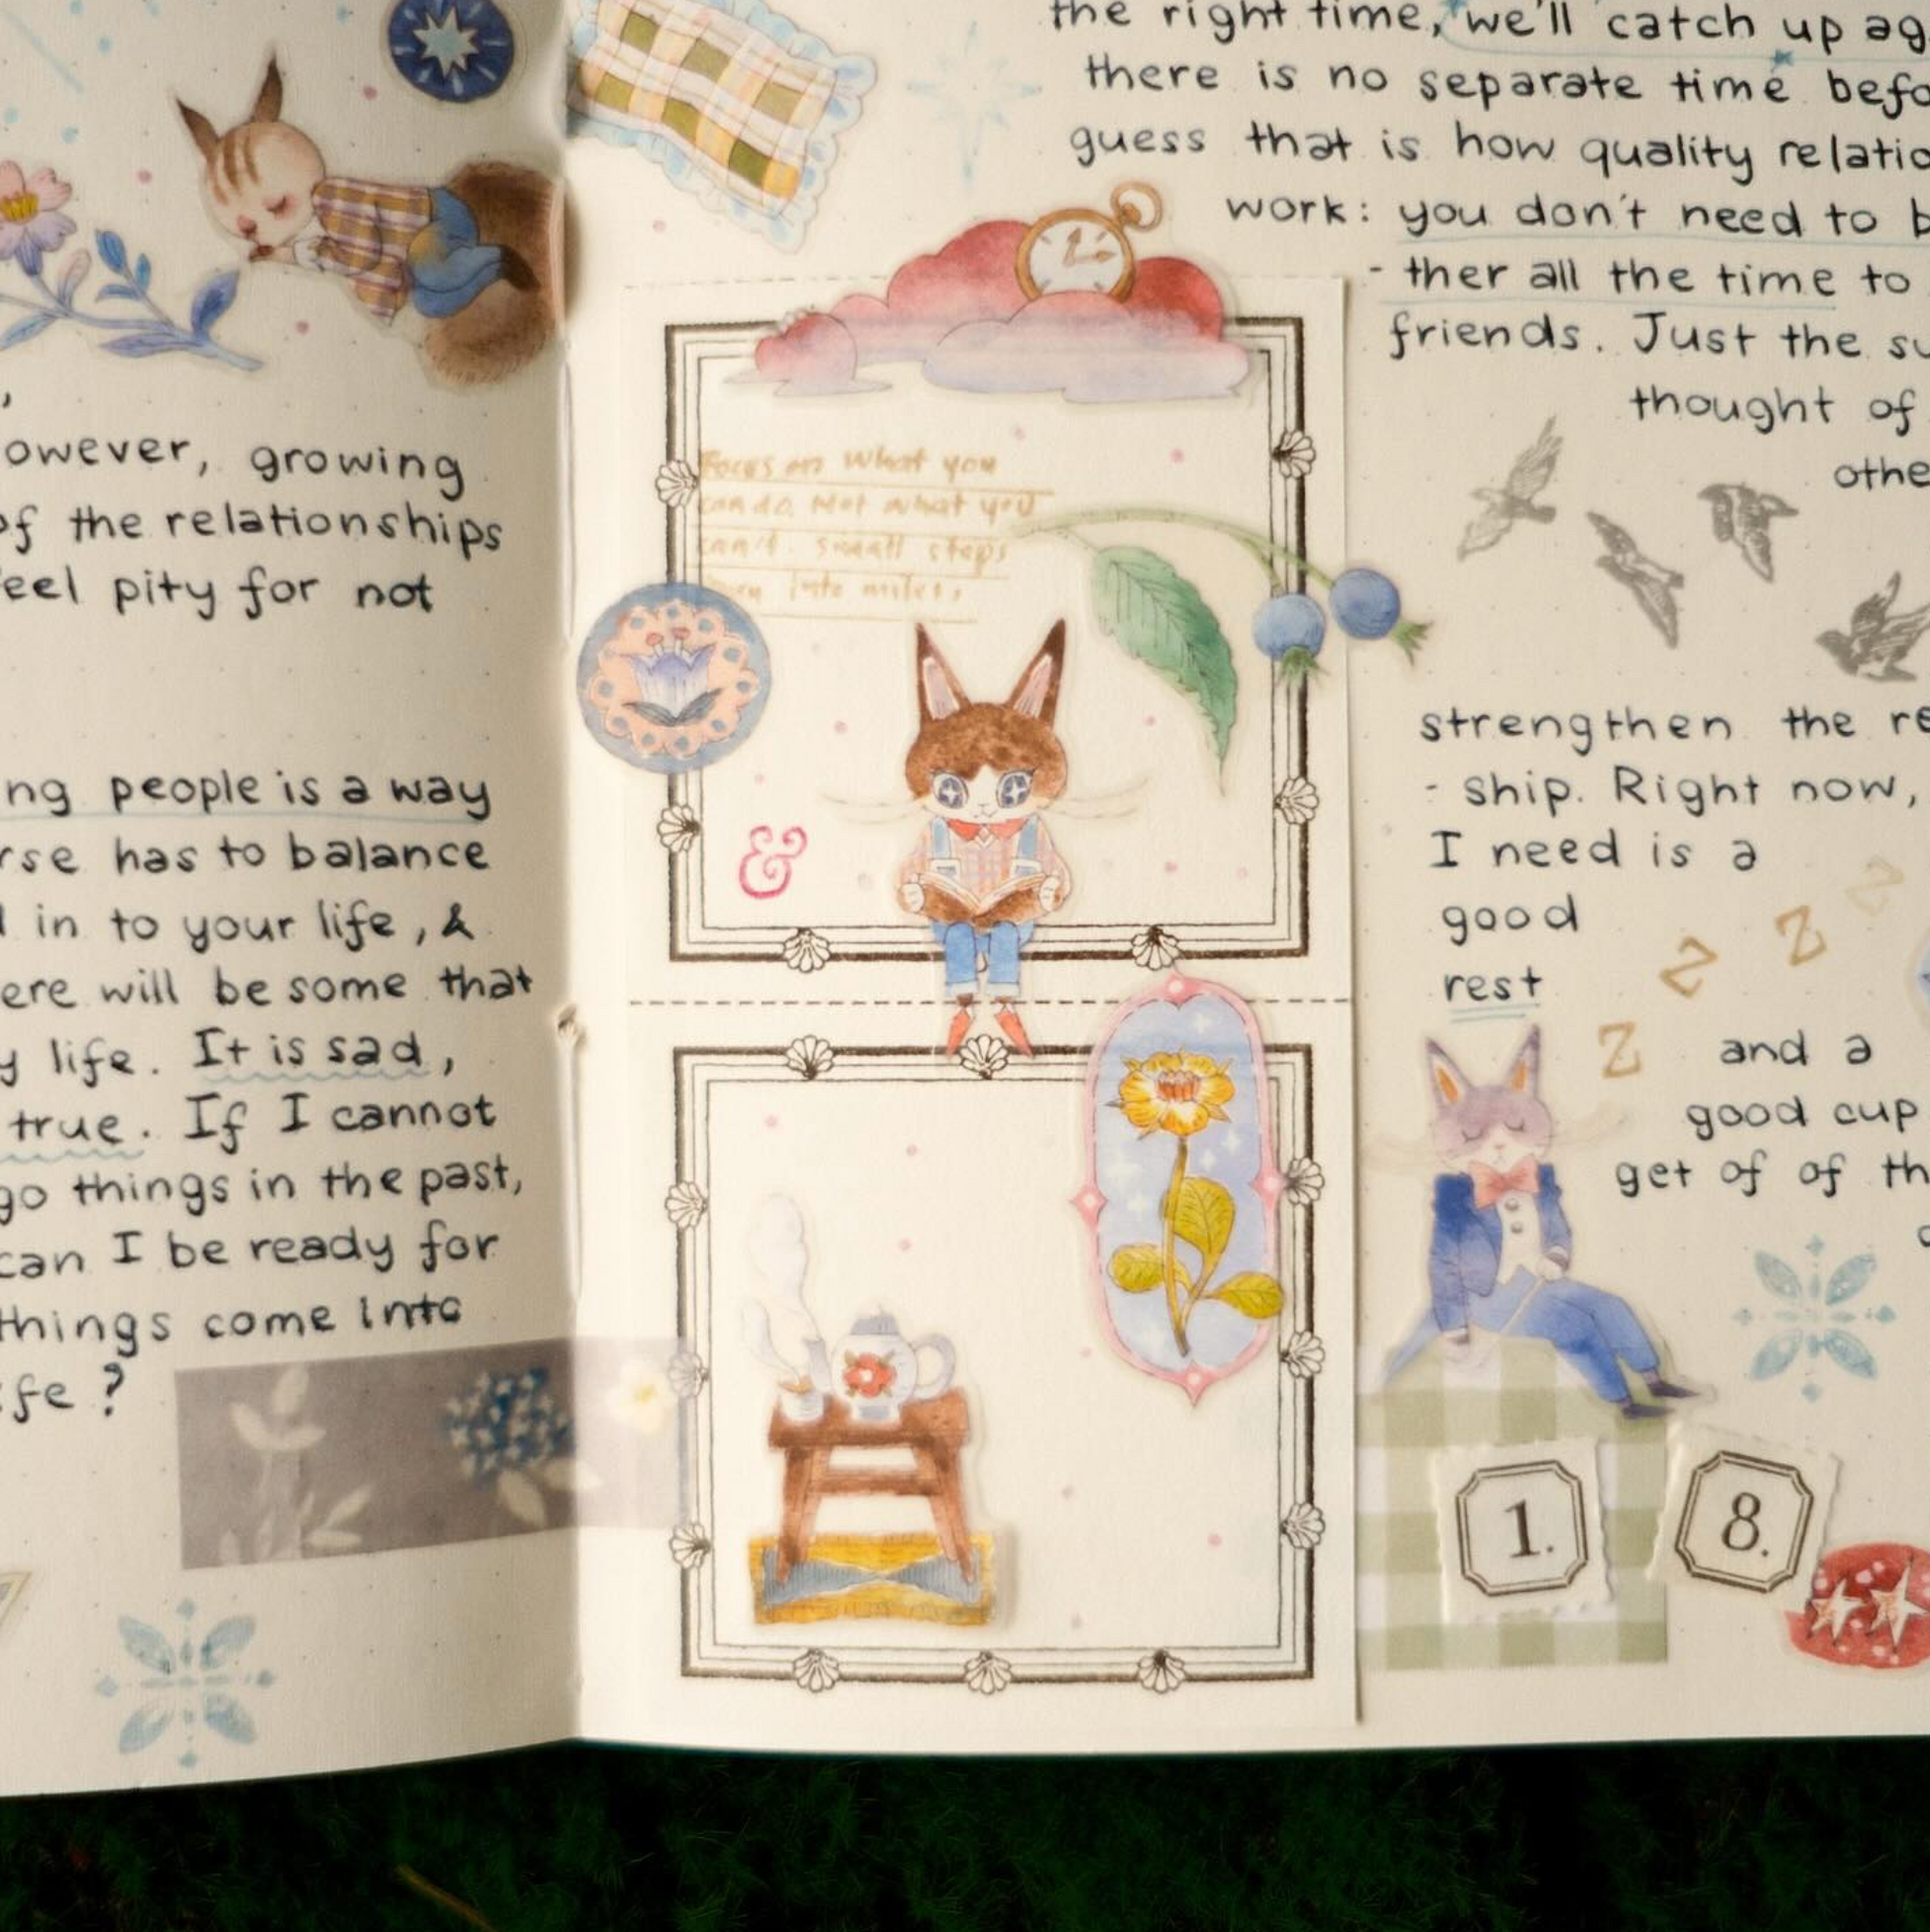 owever, growing
of the relationships
feel pity for not
ng people is a way
rse has to balance
in to your life, &
ere will be some that
y life. It is sad,
true. If I cannot
go things in the past,
can I be ready for
things come into
fe?
the right time, we'll catch up ag
there is no separate time befo
guess that is how quality relatio
work: you don't need to b
- ther all the time to
friends. Just the su
thought of
othe
Focus on what you
can do, Not what you
can't. small steps
into miles,
&
strengthen the re
- ship. Right now,
I need is a
good
rest
z z z z
and a
good cup
get of of th
1. 8.